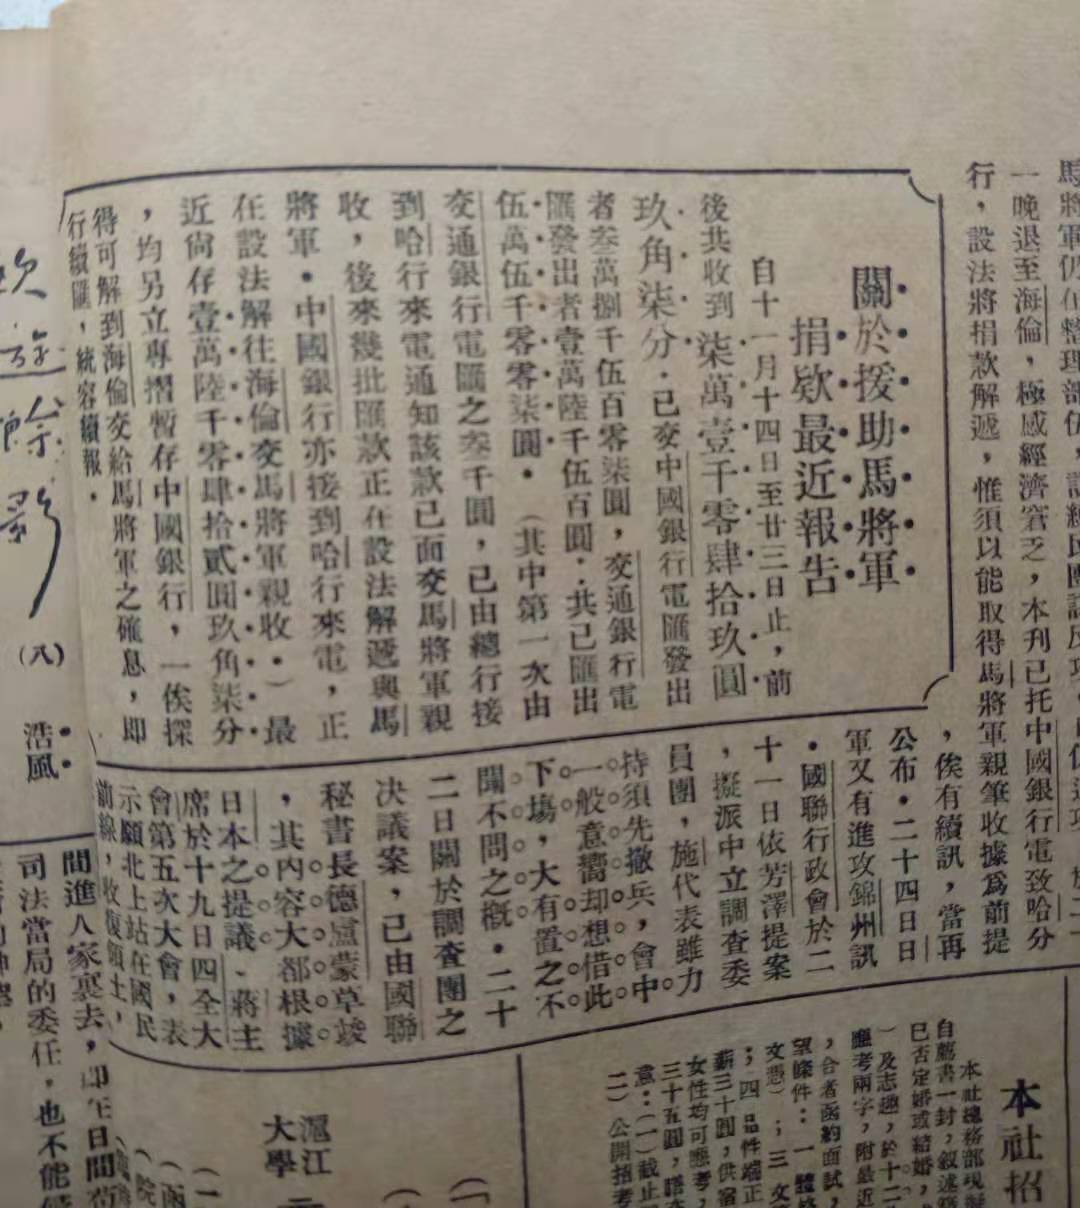 馬將軍仍在整理部伍，
一晚退至海倫，極感經濟窘乏，本刊已托中國銀行電致哈分
行，設法將捐款解遞，惟須以能取得馬將軍親筆收據爲前提
，俟有續訊，當再
公布·二十四日日
軍又有進攻錦州訊
·國聯行政會於二
十一日依芳澤提案
，擬派中立調查委
員團，施代表雖力
持須先撤兵，會中
一般意嚮却想借此
下塲，大有置之不
聞不問之槪·二十
二日關於調查團之
決議案，已由國聯
秘書長德盧蒙草竣
，其內容大都根據
日本之提議·蔣主
席於十九日四全大
會第五次大會，表
示願北上站在國民
前線，收復領土，
關於援助馬將軍
捐欵最近報告
自十一月十四日至廿三日止，前
後共收到柒萬壹千零肆拾玖圓
玖角柒分·已交中國銀行電匯發出
者叁萬捌千伍百零柒圓，交通銀行電
匯發出者壹萬陸千伍百圓·共已匯出
伍萬伍千零零柒圓·（其中第一次由
交通銀行電匯之叁千圓，已由總行接
到哈行來電通知該款已面交馬將軍親
收，後來幾批匯款正在設法解遞與馬
將軍·中國銀行亦接到哈行來電，正
在設法解往海倫交馬將軍親收·）最
近尙存壹萬陸千零肆拾貳圓玖角柒分
，均另立專摺暫存中國銀行，一俟探
得可解到海倫交給馬將軍之確息，即
行續匯，統容續報·
（八）
浩風
本社招
本社總務部現
自薦書一封，敘述
已否定婚或結婚，
）及志趣，於十二
應考兩字，附最近
，合者函約面試，
望條件：一 體
；三 文
；四 品性端正
薪三十圓，供宿
女性均可應考，
三十五圓，
意：（一）截止
二）公開招考
滬江
大學
間進人家裏去，
司法當局的委任，也不能